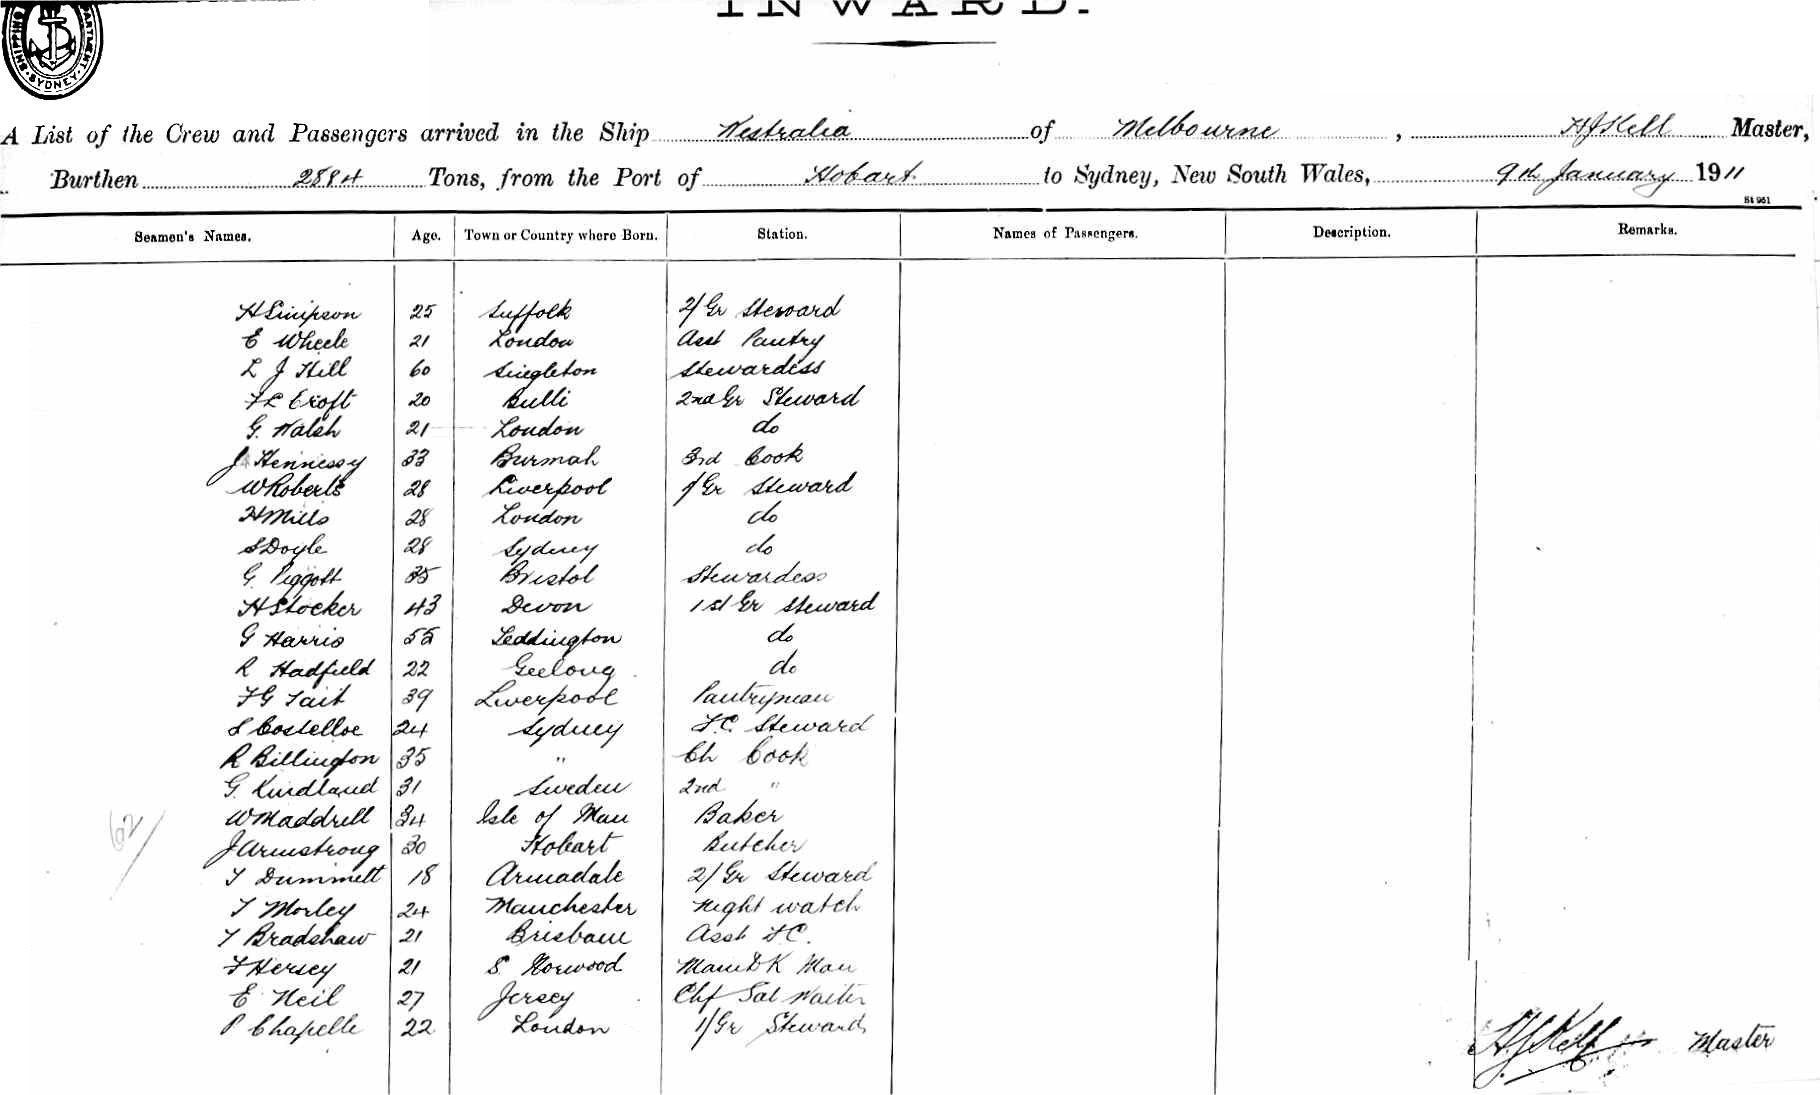 INWARD.
SHIPPING DEPARTMENT SYDNEY
A List of the Crew and Passengers arrived in the Ship Westralia of Melbourne, H J Kell Master,
Burthen 2884 Tons, from the Port of Hobart to Sydney, New South Wales, 9th January 1911
St 961
Seamen's Names. Age. Town or Country where Born. Station. Names of Passengers. Description. Remarks.
H Simpson 25 Suffolk 2/Gr Steward
E Wheele 21 London Asst Pantry
L J Hill 60 Singleton Stewardess
F L Croft 20 Bulli 2nd Gr Steward
G. Walsh 21 London do
J Hennessy 33 Burmah 3rd Cook
W Roberts 28 Liverpool 1 Gr Steward
H Mills 28 London do
S Doyle 28 Sydney do
G Piggott 35 Bristol Stewardess
H Stocker 43 Devon 1st Gr Steward
G Harris 55 Teddington do
R Hadfield 22 Geelong do
F G Tait 39 Liverpool Pantryman
S Costelloe 24 Sydney F.C. Steward
R Billington 35 " Ch Cook
G. Kindland 31 Sweden 2nd "
W Maddrell 34 Isle of Man Baker
62/
J Armstrong 30 Hobart Butcher
T Dummett 18 Armadale 2/Gr Steward
T Morley 24 Manchester Night watch
T Bradshaw 21 Brisbane Asst F.C.
F Hersey 21 S Norwood Main DK Man
E Neil 27 Jersey Chf Sal Waiter
P Chapelle 22 London 1/Gr Steward
H J Kell Master